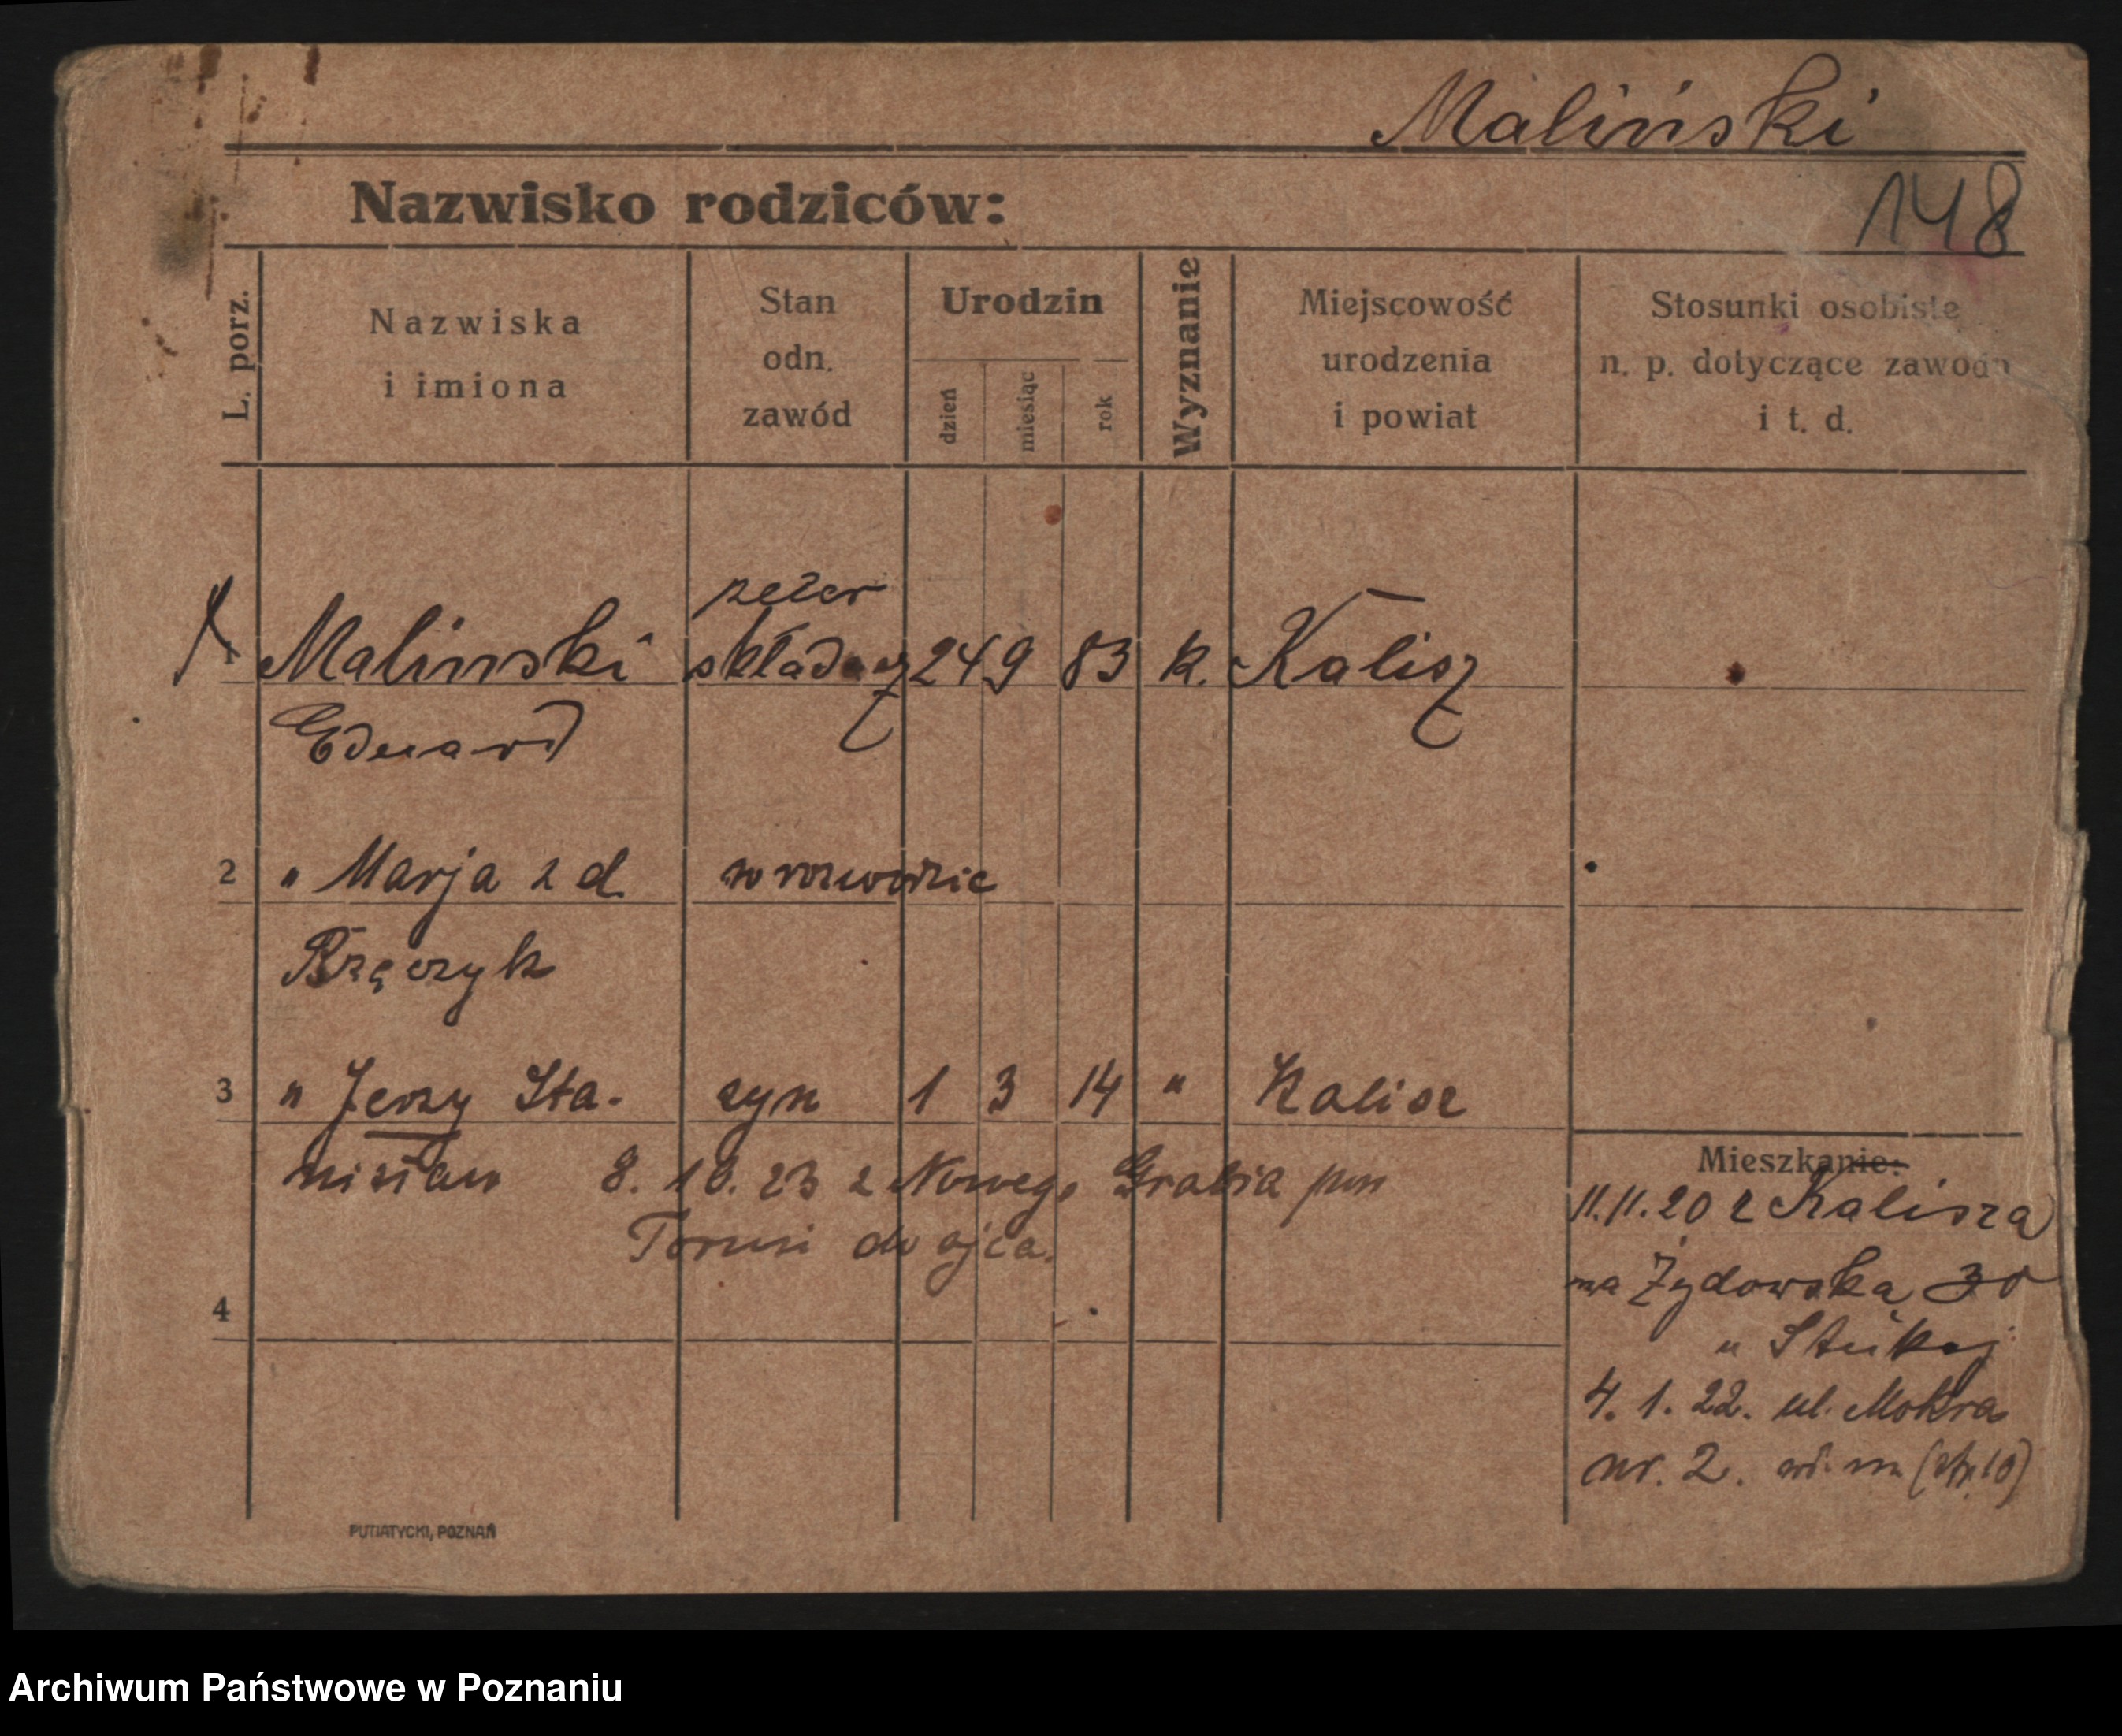 Maliński
148
Nazwisko rodziców:
L. porz.
Nazwiska
i imiona
Stan
odn.
zawód
Urodzin
dzień
miesiąc
rok
Wyznanie
Miejscowość
urodzenia
i powiat
Stosunki osobiste
n. p. dotyczące zawodu
i t. d.
zecer
1 Malinski składacz 24 9 83 k. Kalisz
Edward
2 " Marja z d w rozwodzie
Rzęczyk
3 " Jerzy Sta- syn 1 3 14 " Kalisz
nisław 8. 10. 23 z Nowego Grabia pow
Toruń do ojca.
4
Mieszkanie:
11.11.20 z Kalisza
na Żydowska 30
u
4. 1. 22. ul. Mokra
nr. 2.
PUTIATYCKI, POZNAŃ
Archiwum Państwowe w Poznaniu